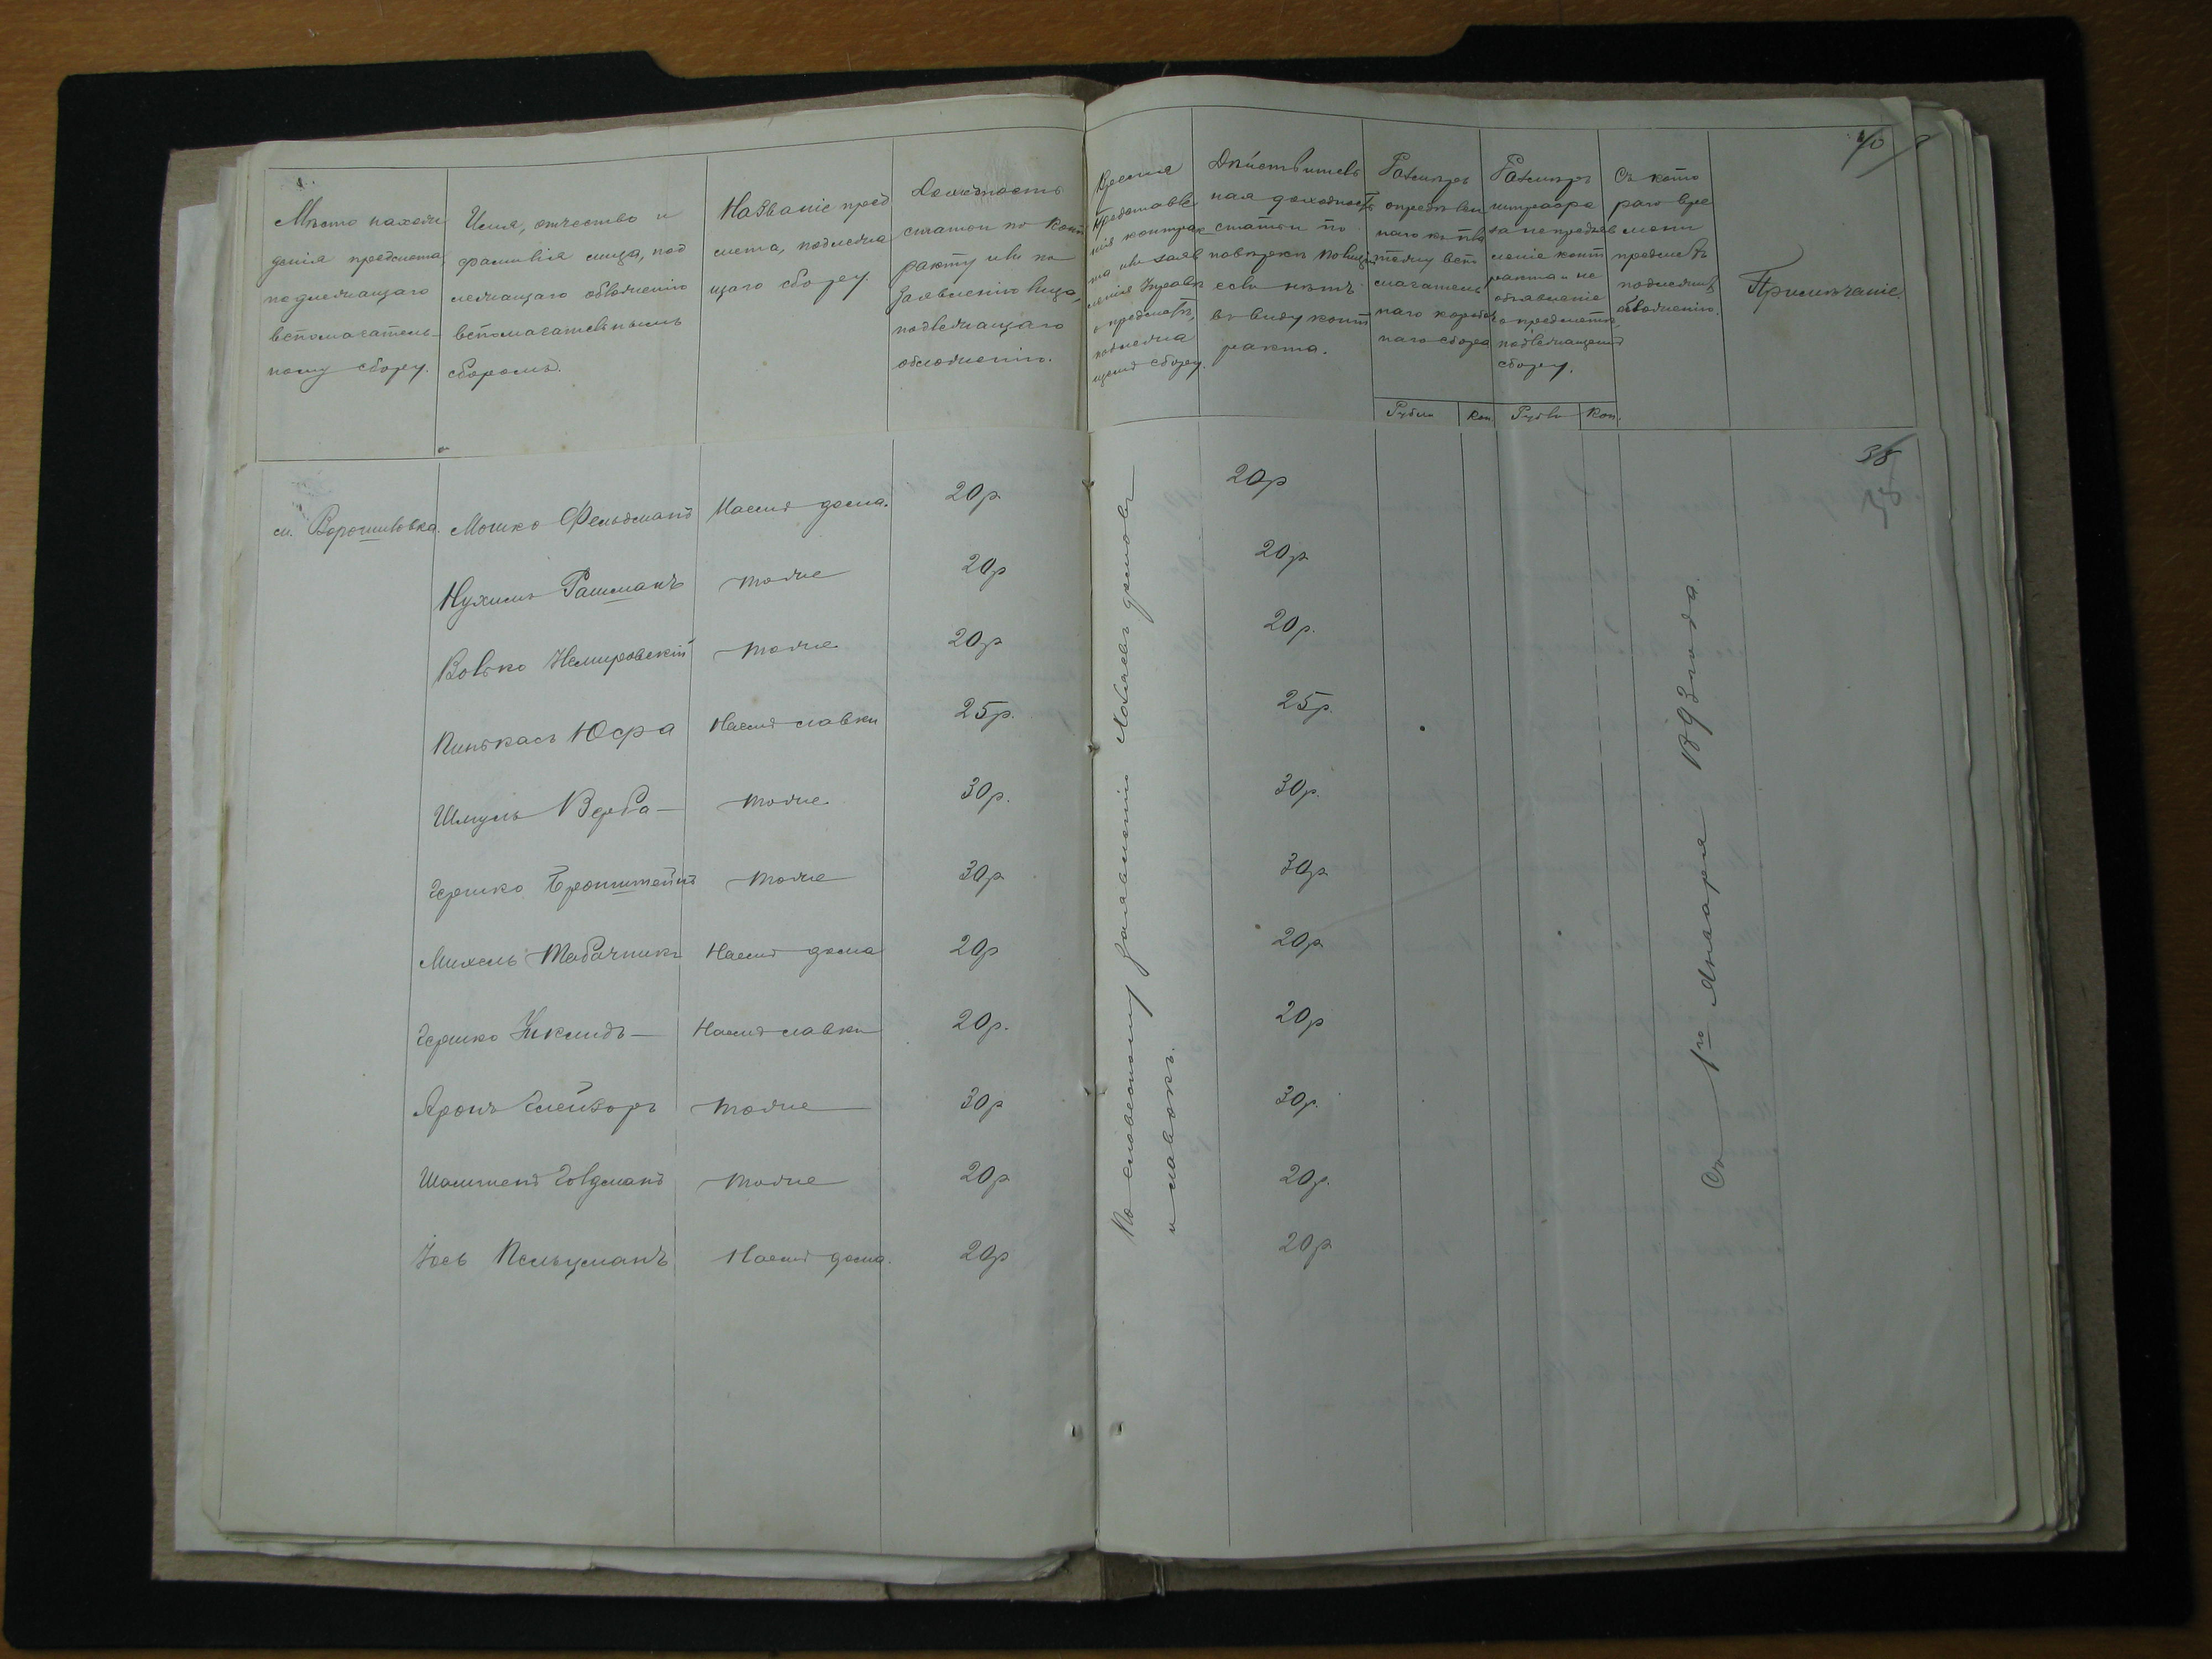 Мѣсто нахож
денія предмета,
подлежащаго
вспомогатель-
ному сбору.
Имя, отчество и
фамилія лица, под
лежащаго обложенію
вспомогательнымъ
сборомъ.
Названіе пред
мета, подлежа
щаго сбору.
Доходность
статьи по конт
ракту или по
заявленію лица,
подлежащаго
обложенію.
Время
представле
нія контрак
та или заяв
ленія Управѣ
о предметѣ,
подлежа
щемъ сбору.
Дѣйствитель
ная доходность
статьи по
повѣркѣ полиціи
если нѣтъ
въ виду конт
ракта.
Размѣръ
опредѣлен
наго къ пла
тежу всп
магатель
наго коробоч
наго сбора
Рубли
Коп.
Размѣръ
штрафа
за непредъяв
леніе конт
ракта и не
объявленіе
о предметѣ,
подлежащемъ
сбору.
Рубли
Коп.
Съ кото
раго вре
мени
предметъ
подлежитъ
обложенію.
Примѣчаніе.
40
38
м. Ворошиловка.
Мошко Фельдманъ
Наемъ дома.
20р
20р
Нухимъ Рашманъ
тоже
20р
20р
Волько Немировскій
тоже
20р
20р.
Пинькасъ Юфра
Наемъ лавки
25р.
25р.
Шмуль Верба
тоже
30р.
30р.
Гершко Бронштейнъ
тоже
30р
30р
Михель Табачникъ
Наемъ дома
20р
20р
Гершко
Наемъ лавки
20р.
20р
Аронъ Глейзеръ
тоже
30р
30р.
Голдманъ
тоже
20р
20р.
Іось Пельцманъ
Наемъ дома.
20р
20р
По словесному заявленію хозяевъ домовъ
и лавокъ.
Съ 1го Января 1893 года.